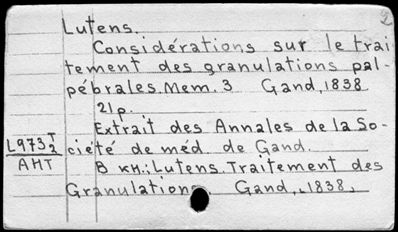 2
Lutens.
Considérations sur le trai
tement des granulations pal-
pébrales. Mem. 3 Gand, 1838
21p.
Extrait des Annales de la So-
L973 T/2 ciété de méd de Gand.
АМТ В кн.: Lutens. Traitement des
Granulations. Gand, 1838,